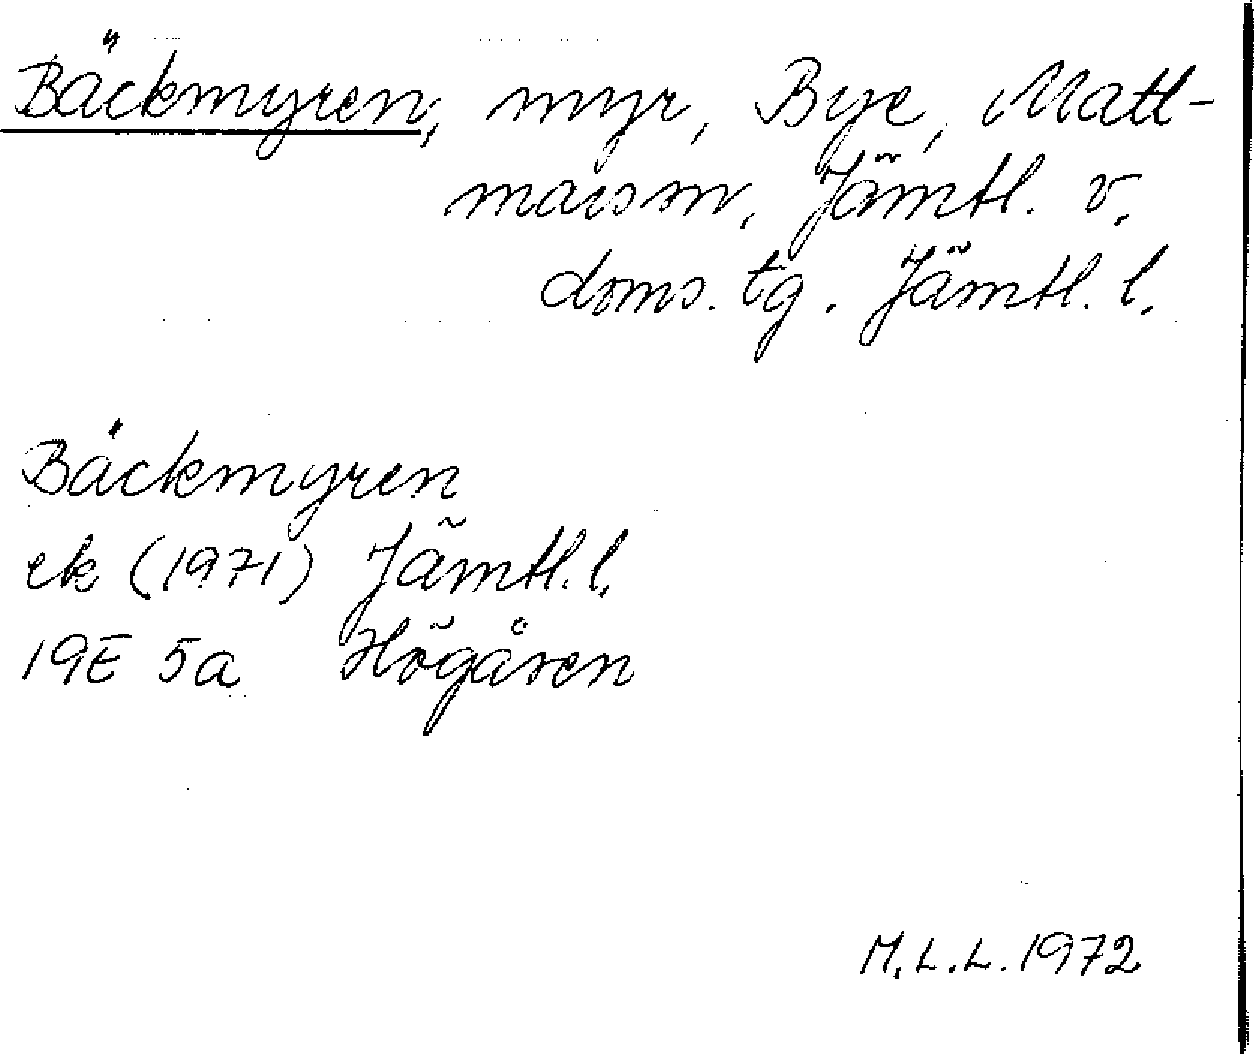 Bäckmyren, myr, Bye, Matt-
marsm, Jämtl. v.
doms. tg. Jämtl. l.
Bäckmyren
ek (1971) Jämtl. l.
19E 5a Högåsen
M.L.L. 1972